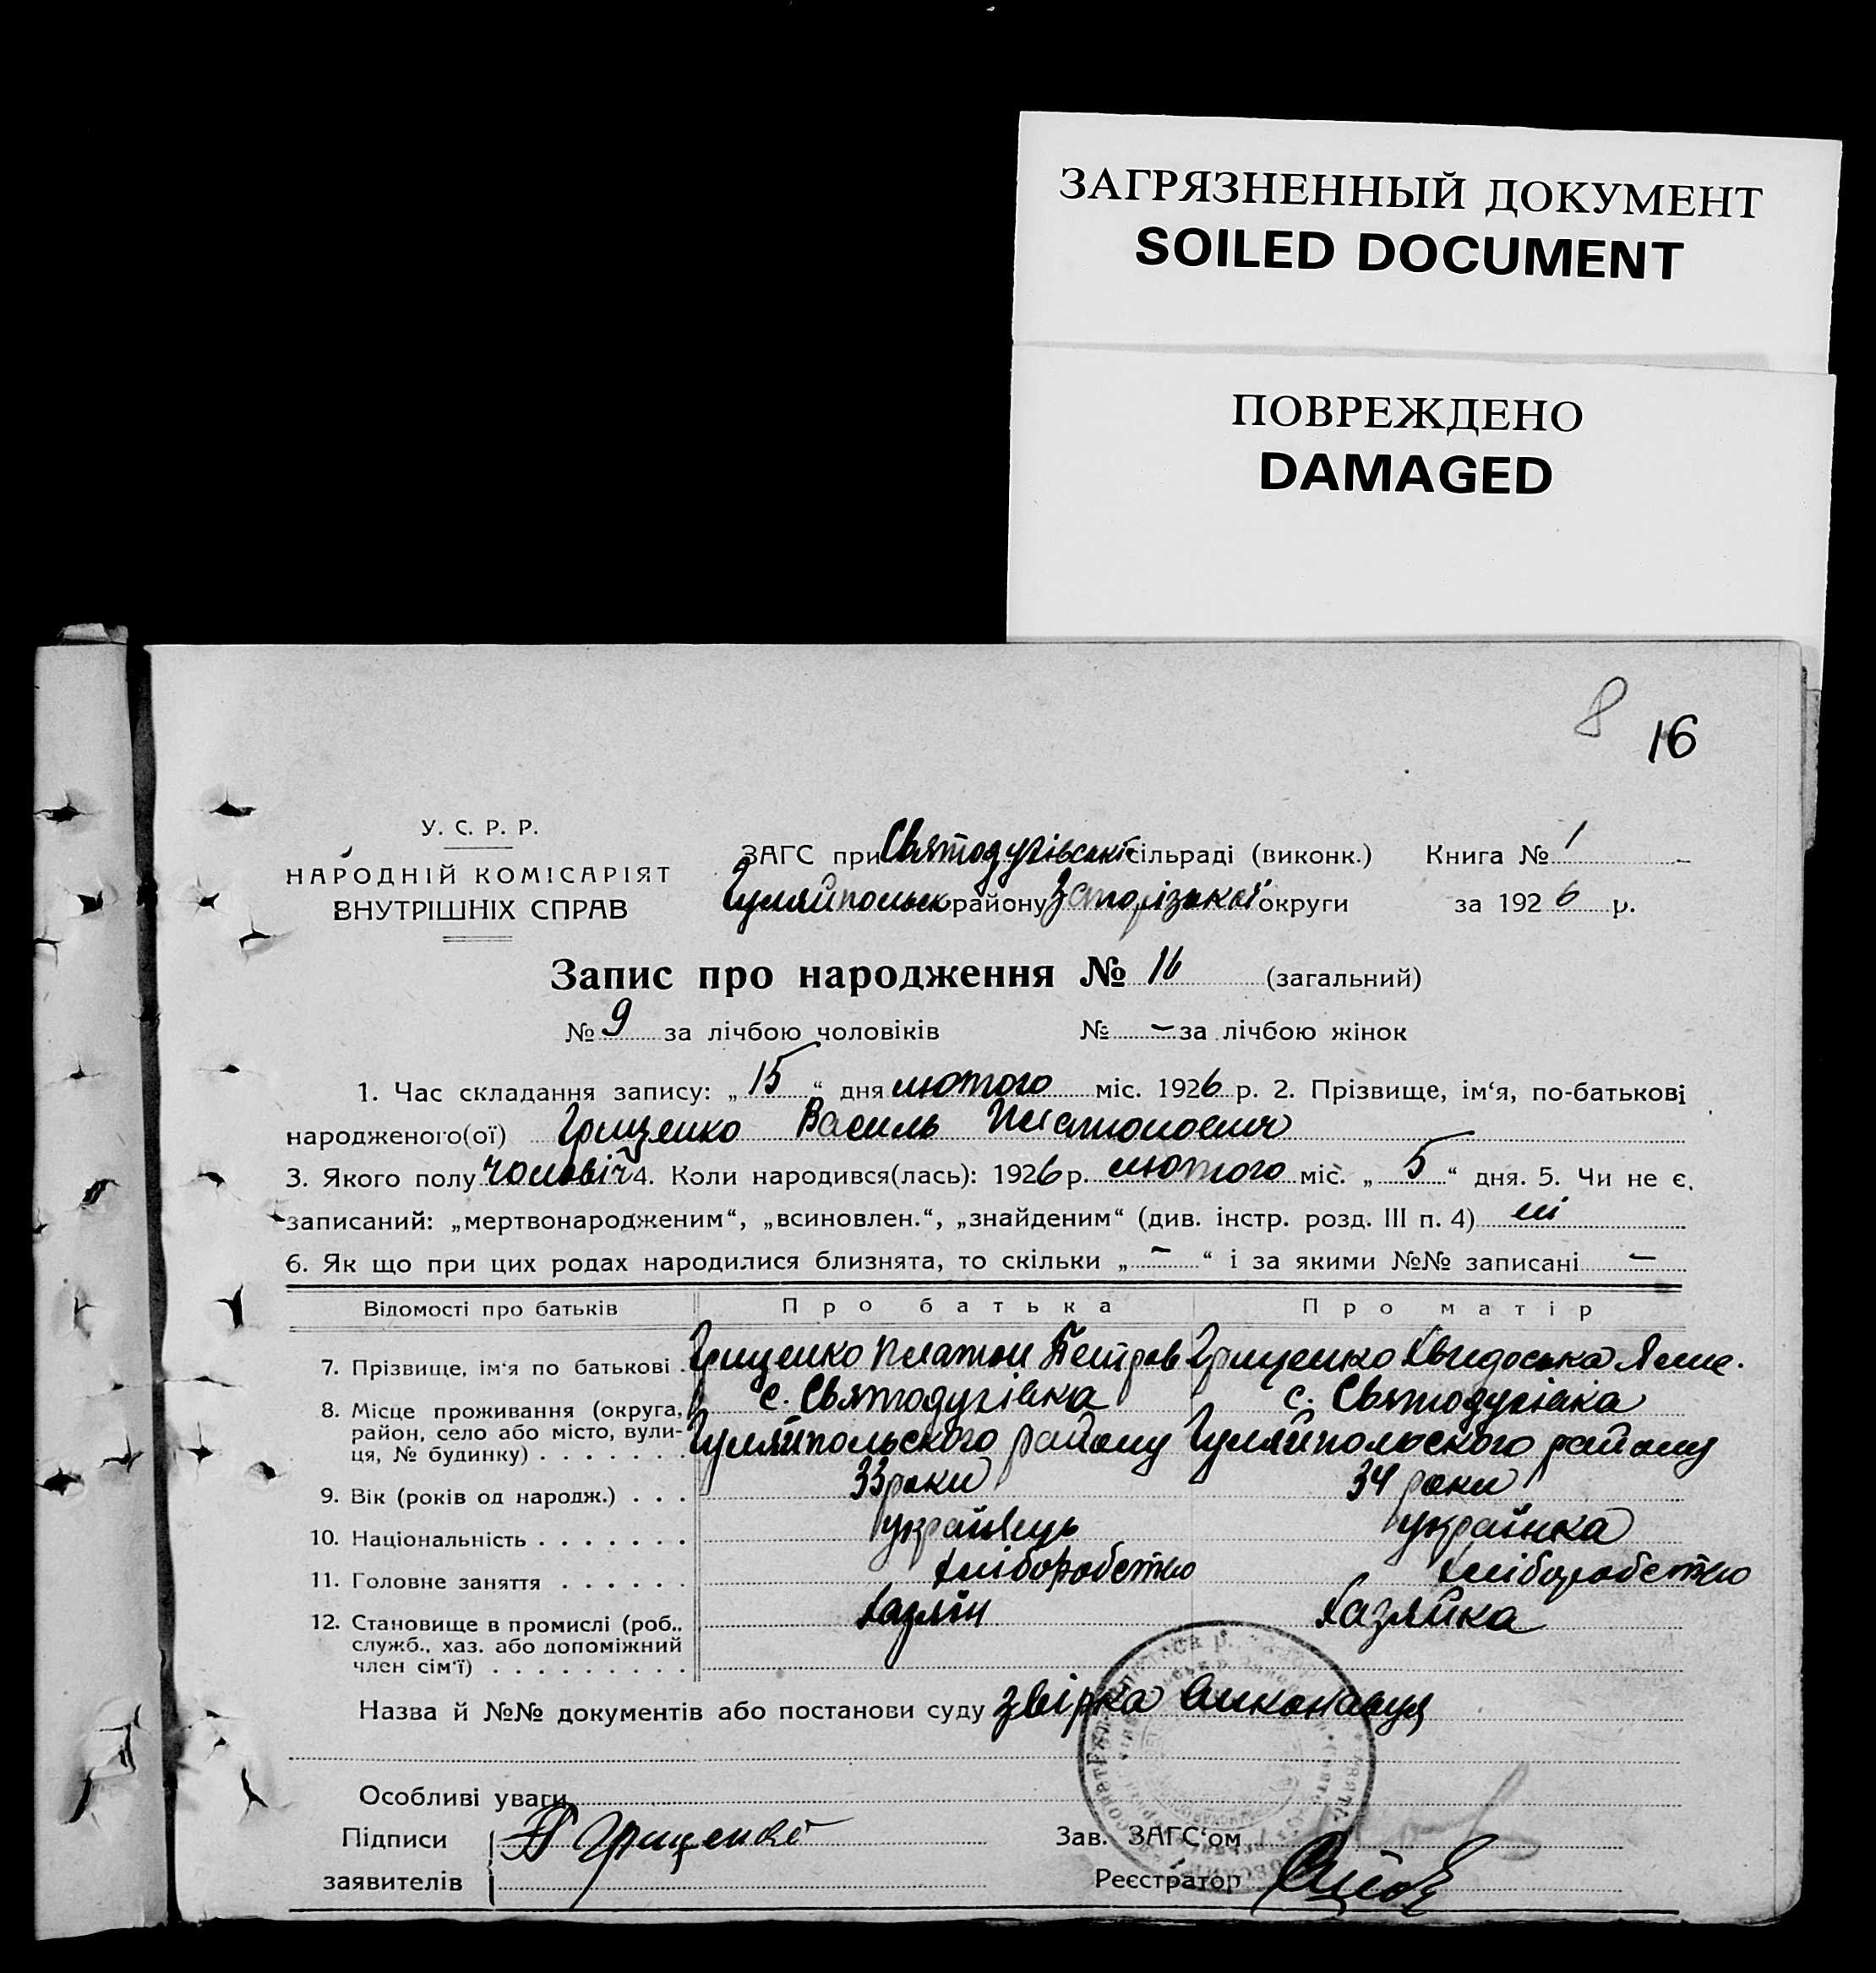 ЗАГРЯЗНЕННЫЙ ДОКУМЕНТ
SOILED DOCUMENT
ПОВРЕЖДЕНО
DAMAGED
8 16
У. С. Р. Р.
НАРОДНІЙ КОМІСАРІЯТ
ВНУТРІШНІХ СПРАВ
ЗАГС при Святодухівській сільраді (виконк.) Книга № 1
Гуляйпольськ району Запорізької округи за 1926 р.
Запис про народження № 16 (загальний)
№ 9 за лічбою чоловіків № – за лічбою жінок
1. Час складання запису: „15“ дня лютого міс. 1926 р. 2. Прізвище, ім‘я, по-батькові
народженого(ої) Грищенко Василь Платонович
3. Якого полу чоловіч 4. Коли народився(лась): 1926 р. лютого міс. „5“ дня. 5. Чи не є
записаний: „мертвонародженим“, „всиновлен.“, „знайденим“ (див. інстр. розд. III п. 4) ні
6. Як що при цих родах народилися близнята, то скільки „–“ і за якими №№ записані –
Відомості про батьків Про батька Про матір
7. Прізвище, ім‘я по батькові Грищенко Платон Петров Грищенко Хвидоська
8. Місце проживання (округа, район, село або місто, вулиця, № будинку) с. Святодухівка с. Святодухівка
Гуляйпольского району Гуляйпольского району
9. Вік (років од народж.) 33 роки 34 роки
10. Національність українець українка
11. Головне заняття хліборобство хліборобство
12. Становище в промислі (роб., служб., хаз. або допоміжний член сім‘ї) хазяїн хазяйка
Назва й №№ документів або постанови суду звірка виконавця
Особливі уваги
Підписи заявителів Грищенко
Зав. ЗАГС‘ом
Реєстратор